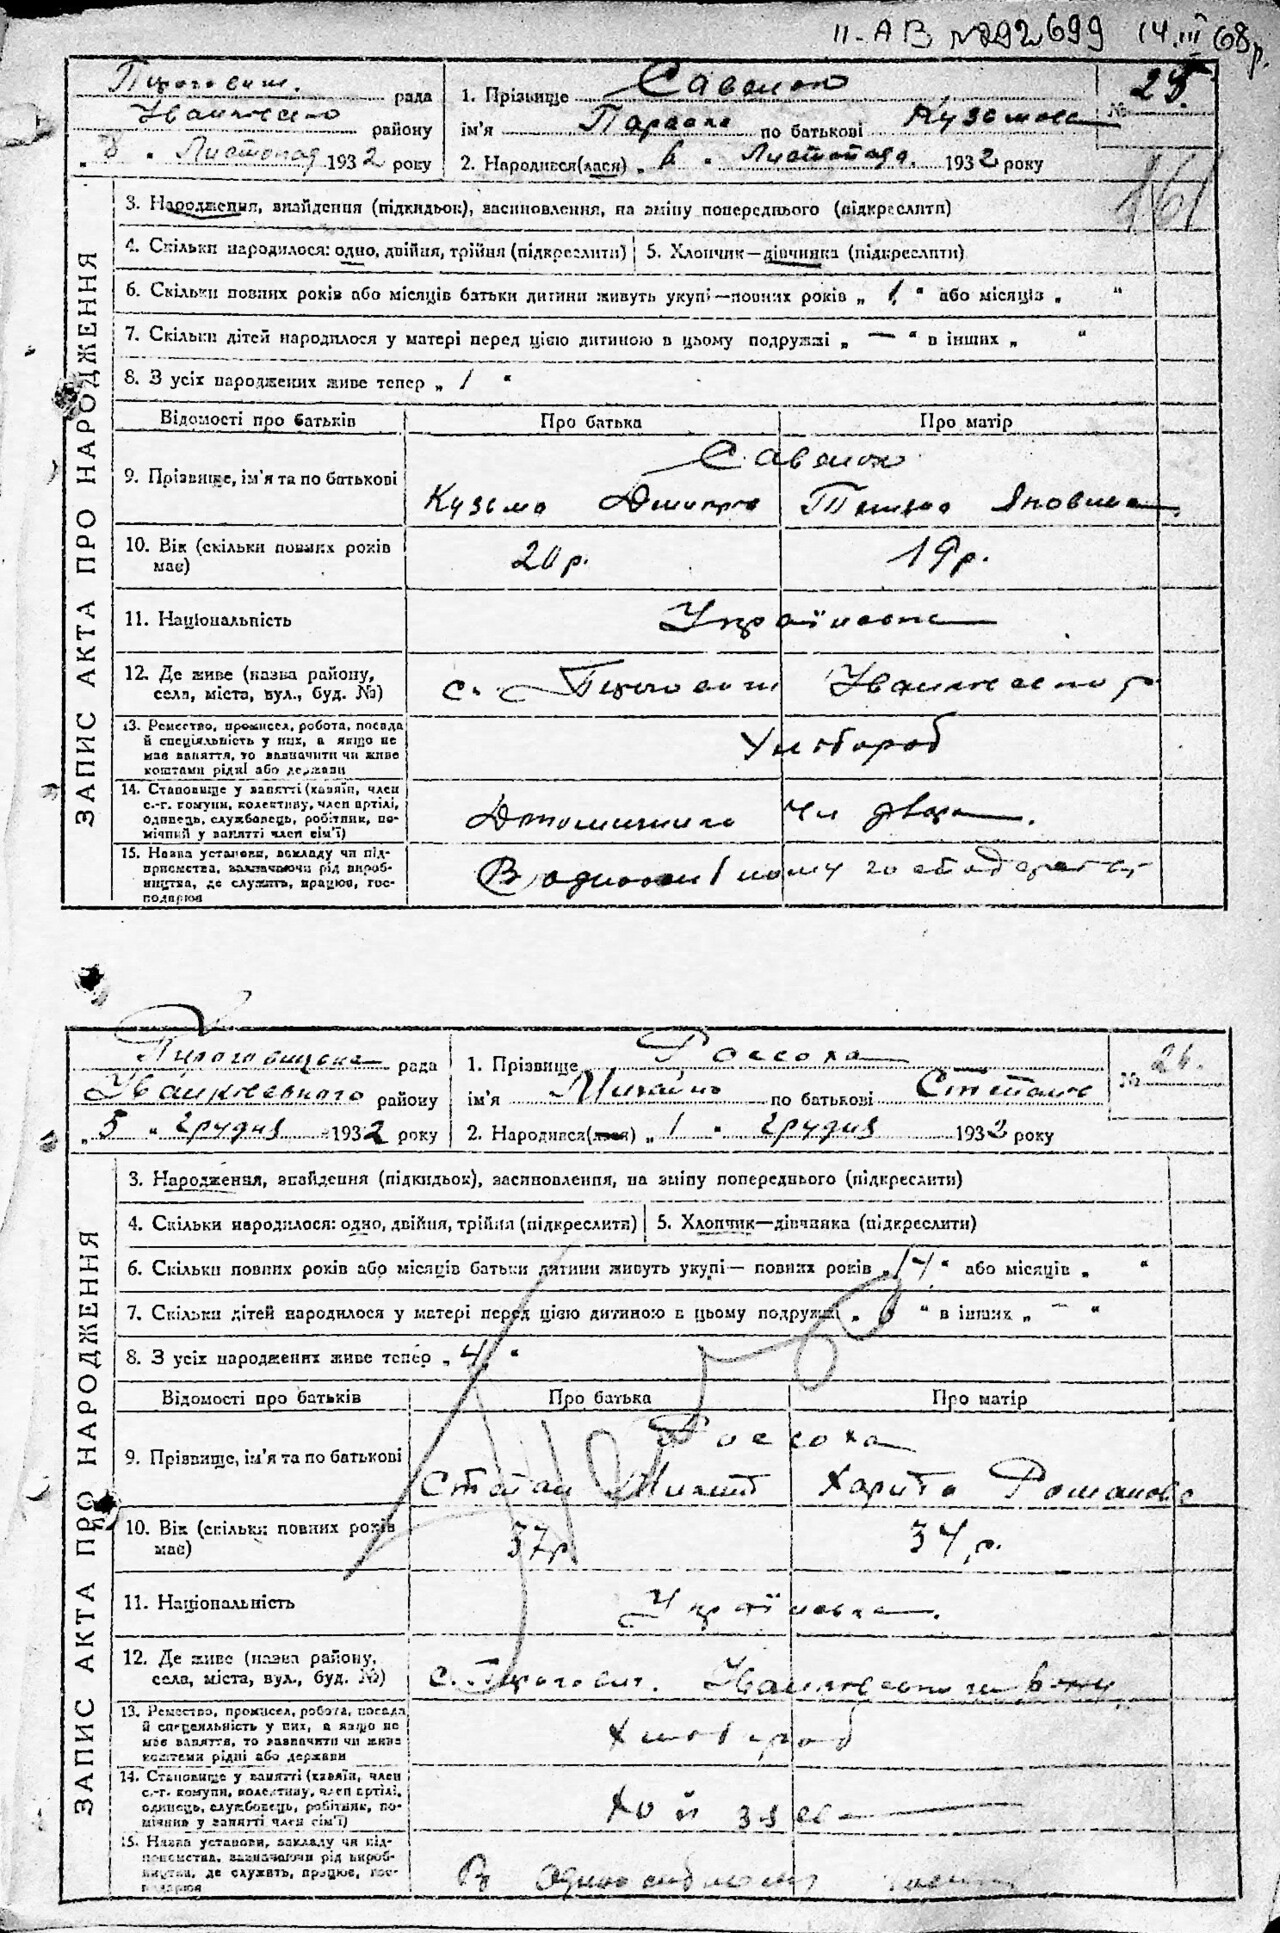 II-АВ №292699 14.III 68р.
рада
1. Прізвище Савенок
№ 25.
району
ім'я Параска по батькові Кузьмова
„ 8 “ Листопад 1932 року
2. Народився(лася) „ 6 “ Листопада 1932 року
161
ЗАПИС АКТА ПРО НАРОДЖЕННЯ
3. Народження, знайдення (підкидьок), засиновлення, на зміну попереднього (підкреслити)
4. Скільки народилося: одно, двійня, трійня (підкреслити) 5. Хлопчик—дівчинка (підкреслити)
6. Скільки повних років або місяців батьки дитини живуть укупі—повних років „ 1 “ або місяців „ “
7. Скільки дітей народилося у матері перед цією дитиною в цьому подружжі „ — “ в інших „ “
8. З усіх народжених живе тепер „ 1 “
Відомості про батьків Про батька Про матір
Савенок
9. Прізвище, ім'я та по батькові
Кузьма Дмитро
10. Вік (скільки повних років має)
20р. 19р.
11. Національність
Українська
12. Де живе (назва району, села, міста, вул., буд. №)
с.
13. Ремество, промисел, робота, посада
й спеціяльність у них, а якщо не
має заняття, то зазначити чи живе
коштами рідні або держави
Хлібороб
14. Становище у занятті (хазяїн, член
с.-г. комуни, колективу, член артілі,
одинець, службовець, робітник, по-
мічний у занятті член сім'ї)
15. Назва установи, закладу чи під-
приємства, зазначаючи рід вироб-
ництва, де служить, працює, гос-
подарює
В
Пироговицька рада
1. Прізвище Россоха
№ 26.
району
ім'я Михайло по батькові Степанов
„ 5 “ Грудня 1932 року
2. Народився(лася) „ 1 “ Грудня 1932 року
ЗАПИС АКТА ПРО НАРОДЖЕННЯ
3. Народження, знайдення (підкидьок), засиновлення, на зміну попереднього (підкреслити)
4. Скільки народилося: одно, двійня, трійня (підкреслити) 5. Хлопчик—дівчинка (підкреслити)
6. Скільки повних років або місяців батьки дитини живуть укупі— повних років „ 14 “ або місяців „ “
7. Скільки дітей народилося у матері перед цією дитиною в цьому подружжі „ “ в інших „ — “
8. З усіх народжених живе тепер „ 4 “
Відомості про батьків Про батька Про матір
Россоха
9. Прізвище, ім'я та по батькові
Степан Микит Харита Романова
10. Вік (скільки повних років має)
37р 34.р.
11. Національність
Українська.
12. Де живе (назва району, села, міста, вул., буд. №)
с.
13. Ремество, промисел, робота, посада
й спецеяльність у них, а якщо не
має заняття, то зазначити чи живе
коштами рідні або держави
Хлібороб
14. Становище у занятті (хазяїн, член
с.-г. комуни, колективу, член артілі,
одинець, службовець, робітник, по-
мічник у занятті член сім'ї)
15. Назва установи, закладу чи під-
приємства, зазначаючи рід вироб-
ництва, де служить, працює, гос-
подарює
В